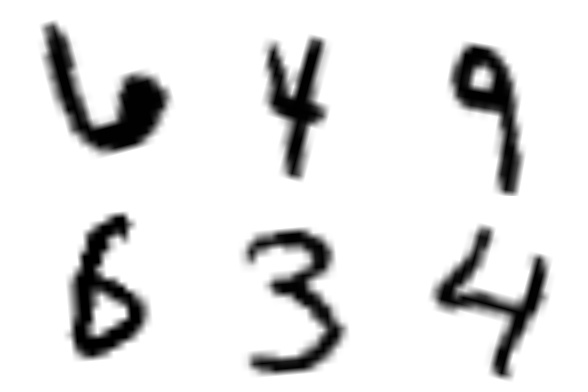 6 4 9
6 3 4